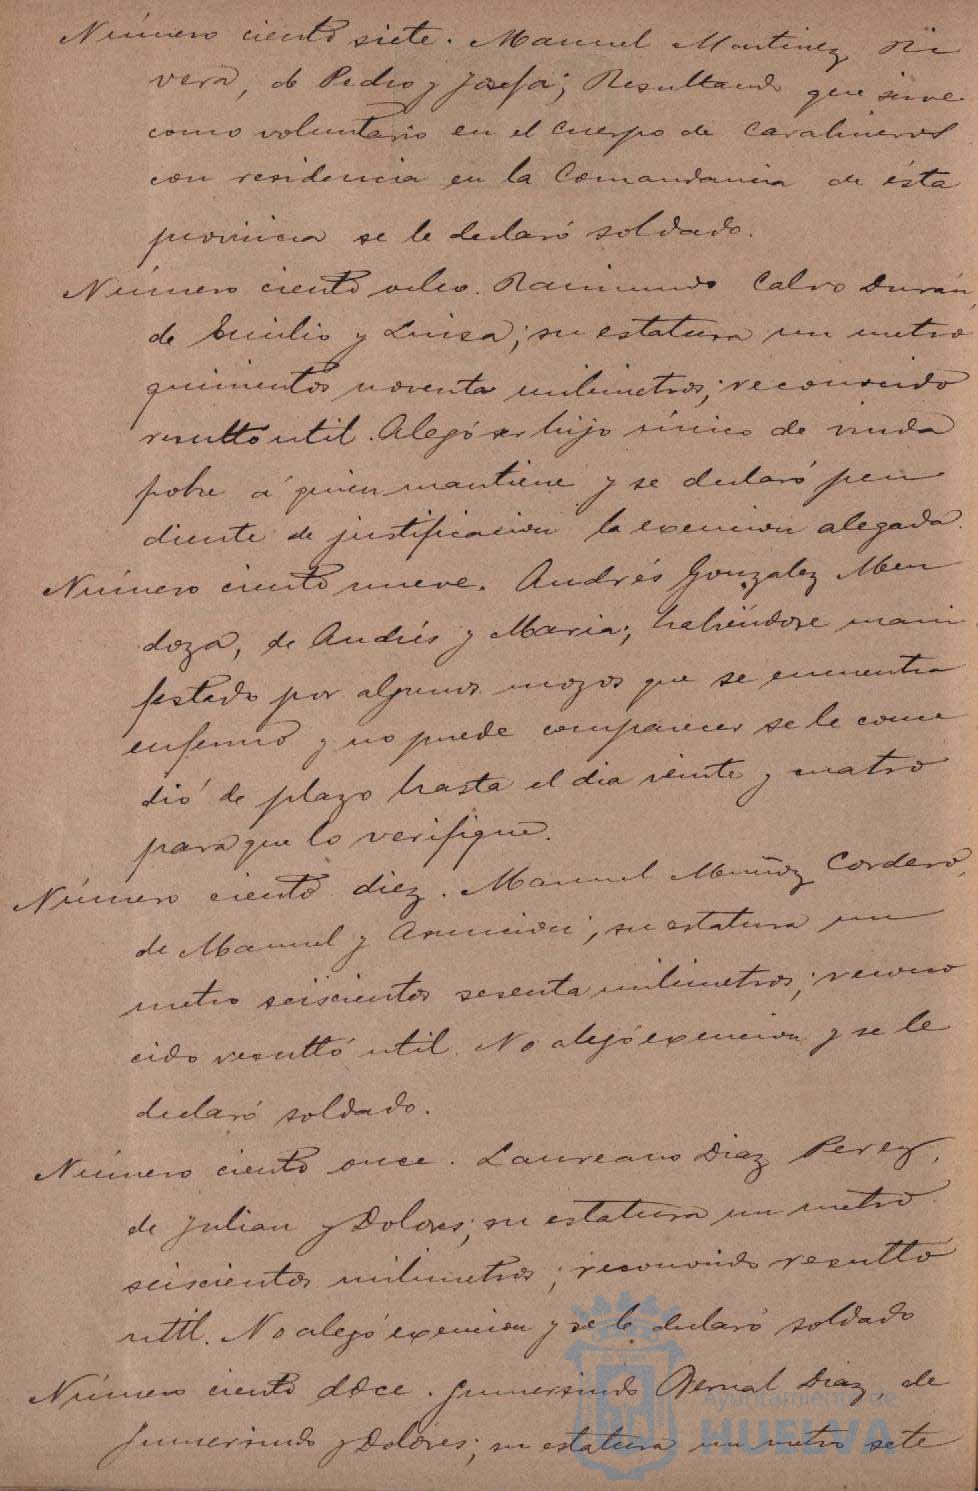 Número ciento siete. Manuel Martinez Ri
vera, de Pedro y Josefa; Resultando que sirve
como voluntario en el Cuerpo de Carabineros
con residencia en la Comandancia de ésta
provincia se le declaró soldado.
Número ciento ocho. Raimundo Calvo Durán,
de Emilio y Luisa; su estatura un metro
quinientos noventa milimetros; reconocido
resultó util. Alegó ser hijo único de viuda
pobre á quien mantiene y se declaró pen
diente de justificacion la exencion alegada.
Número ciento nueve. Andrés Gonzalez Men
doza, de Andrés y Maria; habiéndose mani
festado por algunos mozos que se encuentra
enfermo y no puede comparecer se le conce
dió de plazo hasta el dia veinte y cuatro
para que lo verifique.
Número ciento diez. Manuel Muñoz Cordero,
de Manuel y Asuncion; su estatura un
metro seiscientos sesenta milimetros; recono
cido resultó util. No alegó exencion y se le
declaró soldado.
Número ciento once. Laureano Diaz Perez,
de Julian y Dolores; su estatura un metro
seiscientos milimetros; reconocido resultó
util. No alegó exencion y se le declaró soldado
Número ciento doce. Gumersindo Bernal Diaz, de
Gumersindo y Dolores; su estatura un metro sete
Ayuntamiento de
HUELVA